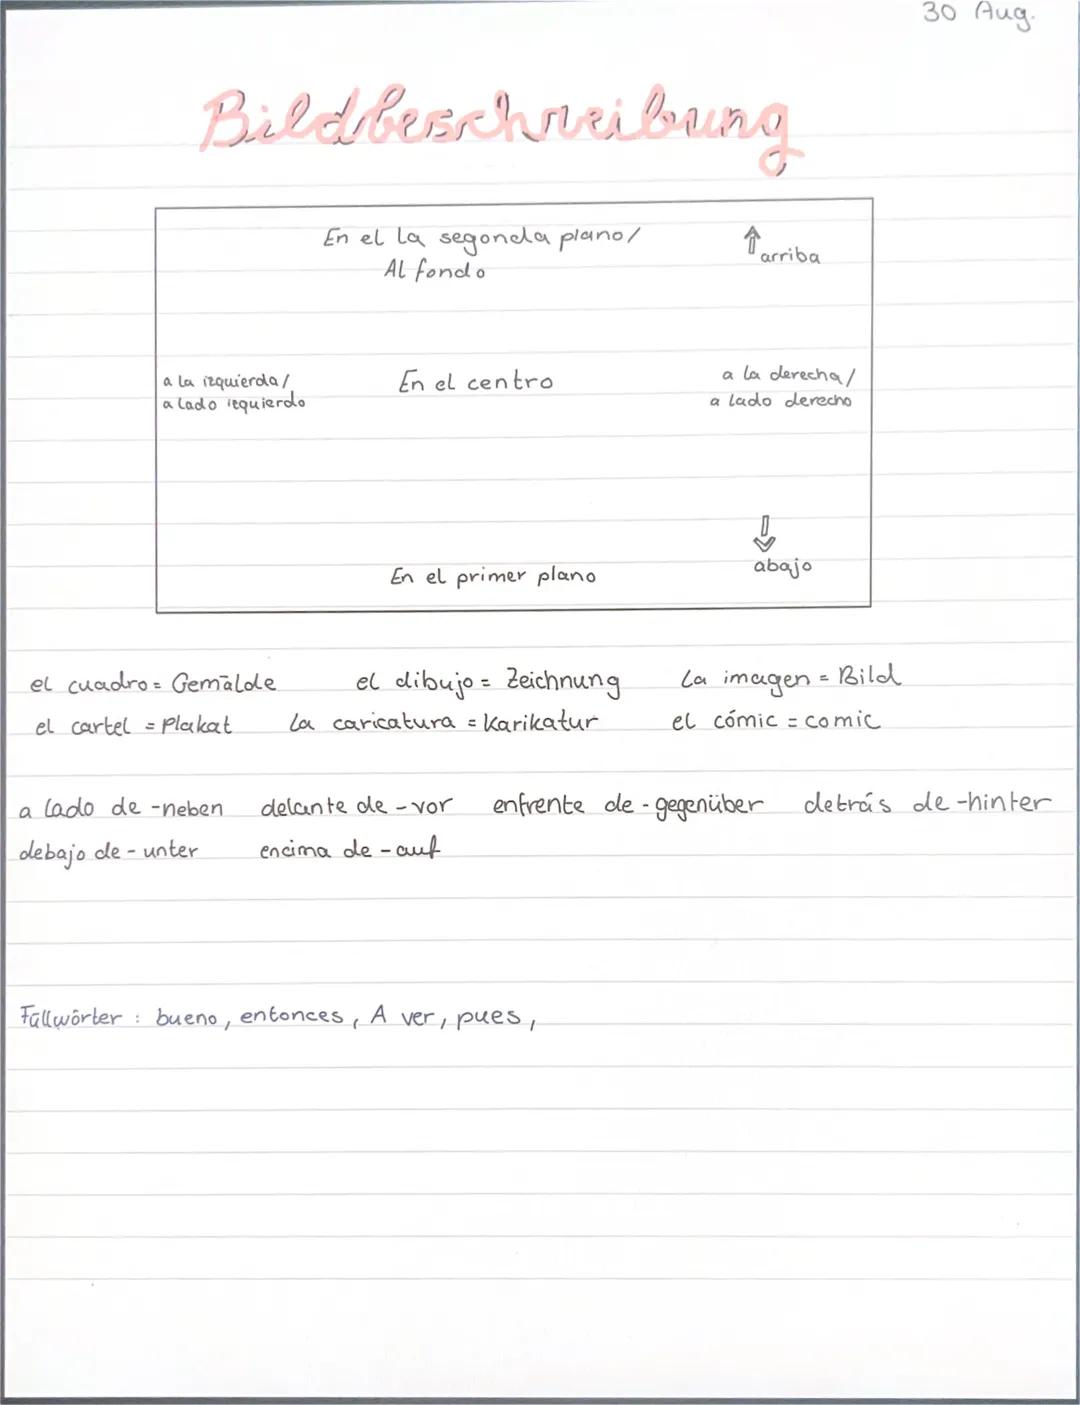 30 Aug.
Bildbeschreibung
En el la segonda plano/
Al fondo
arriba
a la izquierda/
a lado izquierdo
En el centro
a la derecha/
a lado derecho
En el primer plano
abajo
el cuadro = Gemälde el dibujo = Zeichnung La imagen = Bild
el cartel = Plakat La caricatura = Karikatur el cómic = comic
a lado de - neben delante de - vor enfrente de - gegenüber detrás de - hinter
debajo de - unter encima de - auf
Füllwörter : bueno, entonces, A ver, pues,